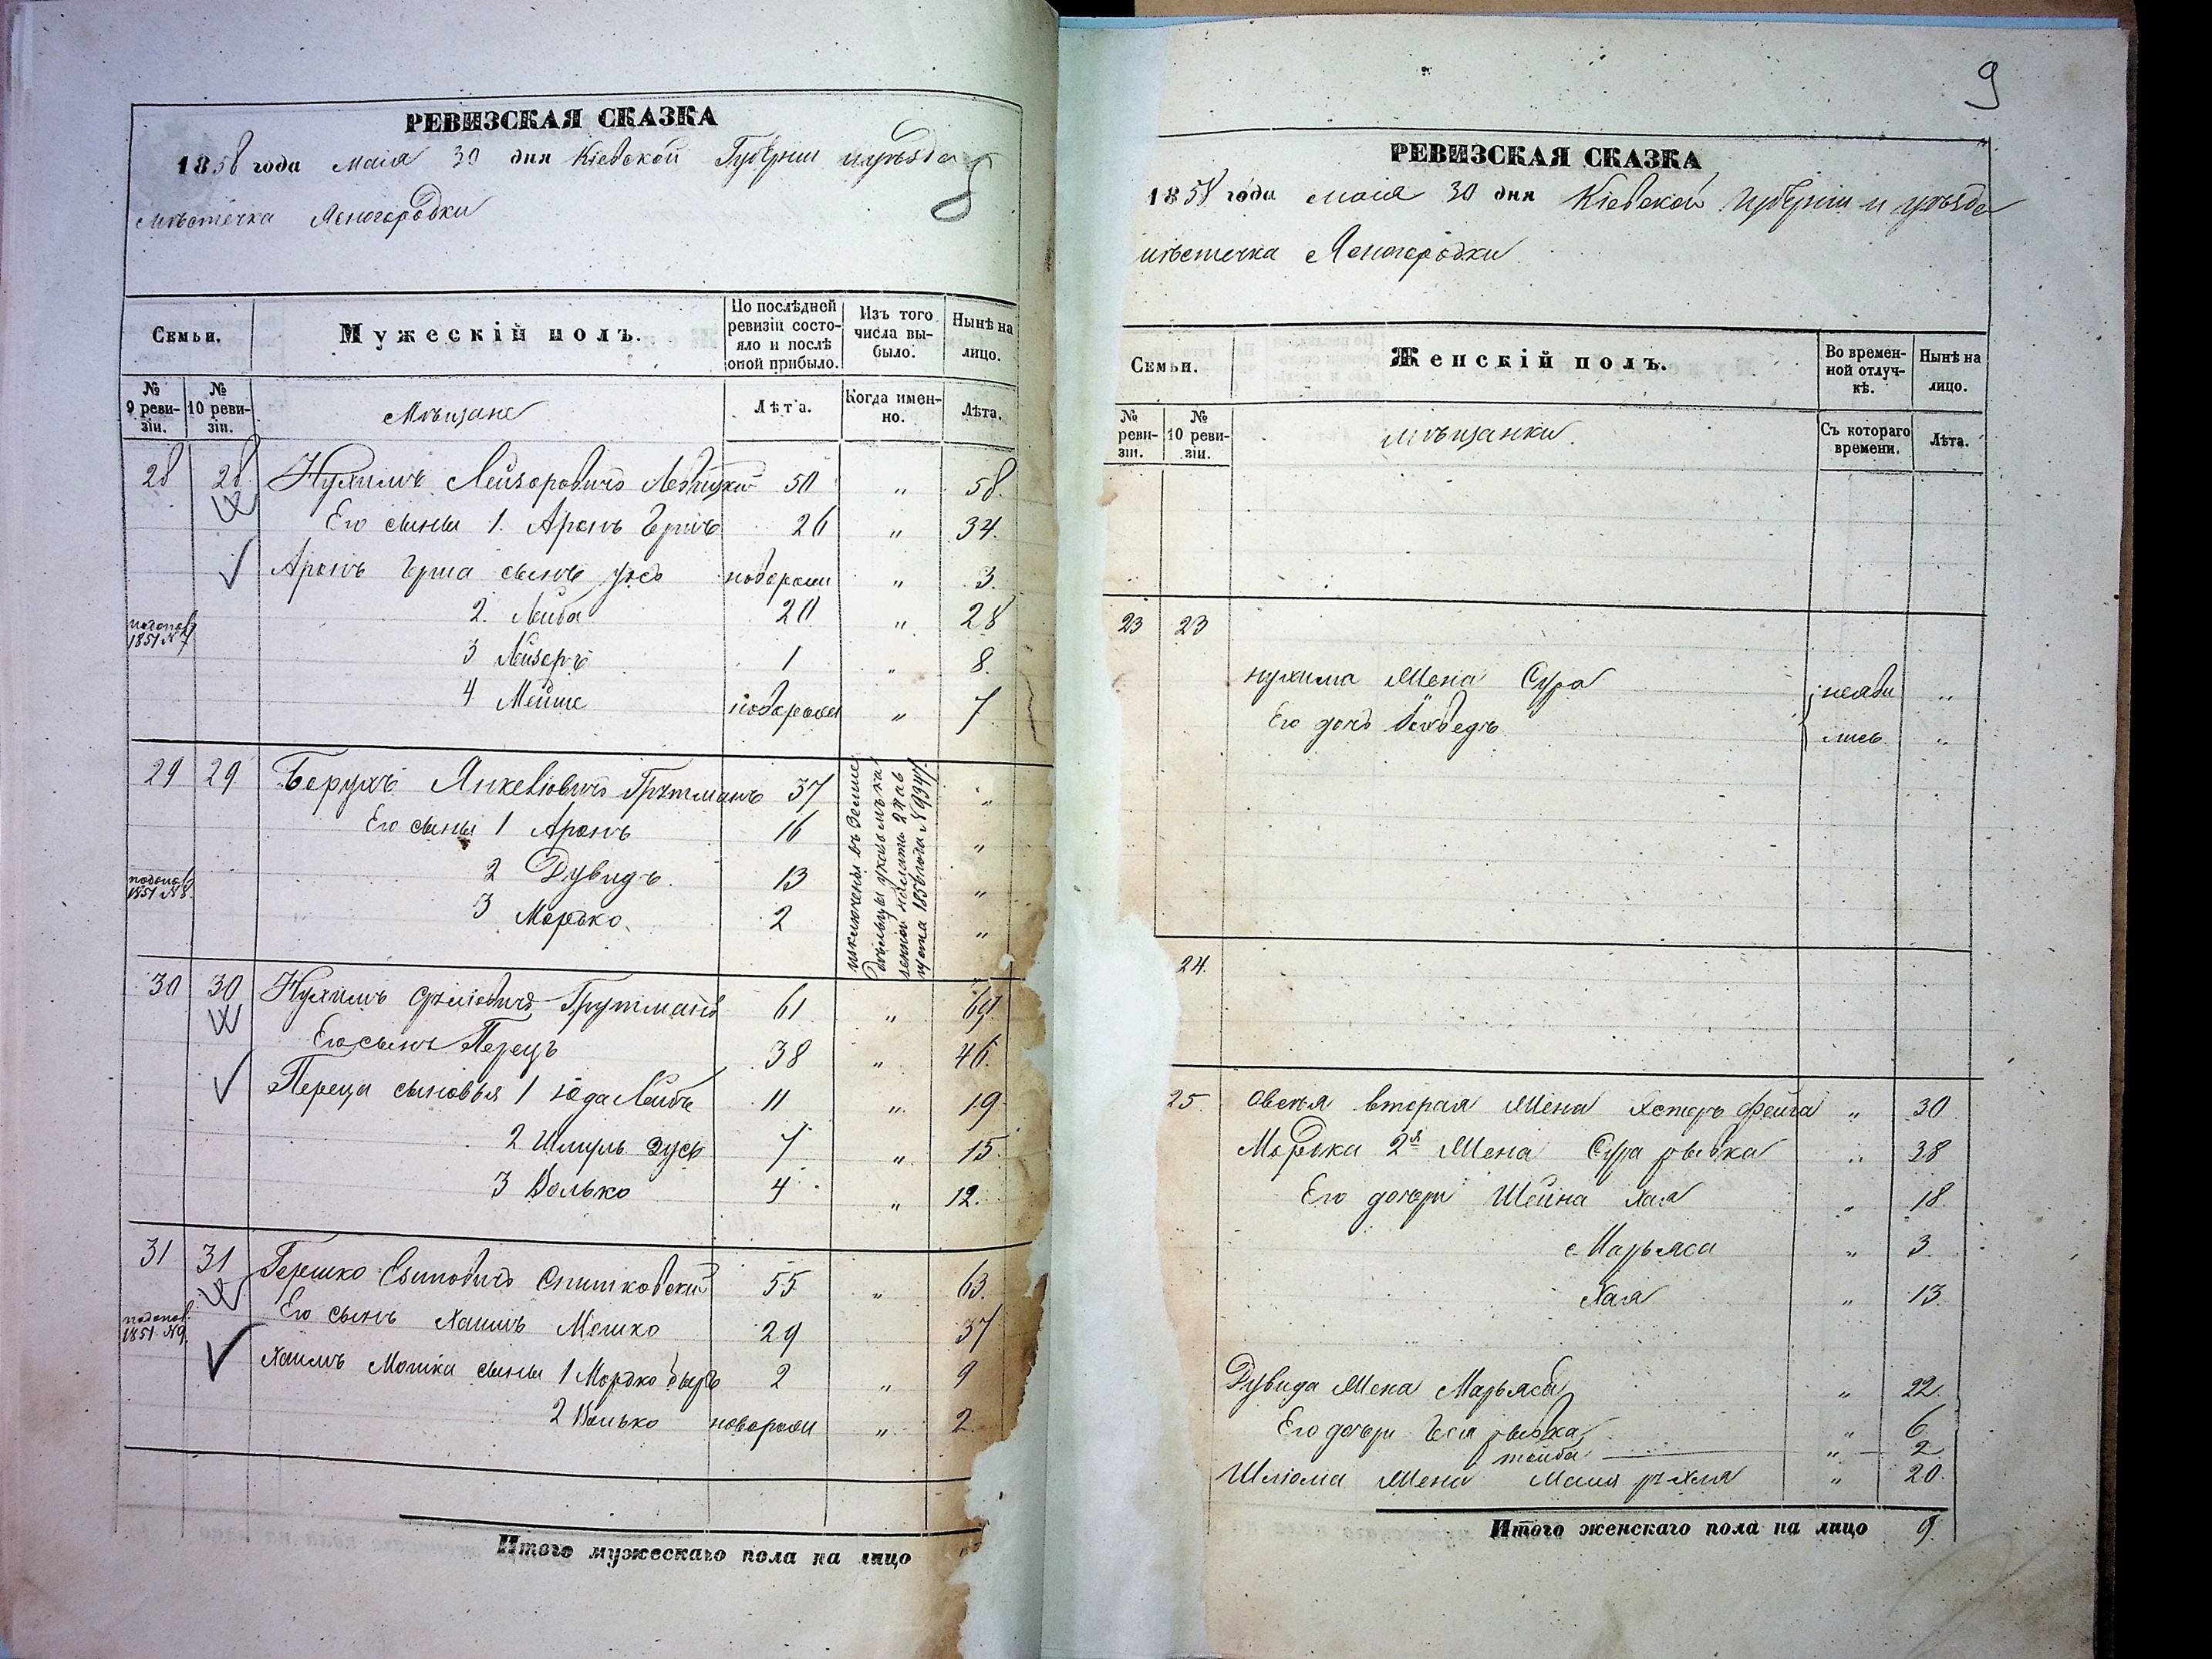 РЕВИЗСКАЯ СКАЗКА
1858 года маія 30 дня Кіевской Губерніи и уѣзда
мѣстечка Ясногородки
8
Семьи.
Мужескій полъ.
По послѣдней ревизіи состояло и послѣ оной прибыло.
Изъ того числа выбыло.
Нынѣ на лицо.
№ 9 ревизіи.
№ 10 ревизіи.
Мѣщане
Лѣта.
Когда именно.
Лѣта.
28 28 Нухимъ Лейзоровичъ 50 " 58.
Его сыны 1. Аронъ Гершъ 26 " 34.
Аронъ Герша сынъ новорожд " 3.
2. Лейба 20 " 28
1851 №7
3 Лейзеръ 1 " 8.
4 Мейше новорожден " 7
29 29 Борухъ Янкеліовичъ Грутманъ 37 "
Его сыны 1 Аронъ 16 "
2 Дувидъ. 13 "
1851 №8.
3 Мордко. 2 "
исключены въ Землед
дѣльцы указомъ ка
зенной палаты 27
1856 года №9347.
30 30 Нухимъ Сруліовичъ Грутманъ 61 " 69.
Его сынъ Перецъ 38 " 46.
Переца сыновья 1 Іода Лейбъ 11 " 19
2 Шмуль Зусь 7 " 15
3 Волько 4 " 12.
31 31 Гершко 55 " 63.
Его сынъ Хаимъ Мошко 29 37
1851 №9.
Хаимъ Мошка сыны 1 Мордко Беръ 2 " 9
2 Волько новорожд " 2.
Итого мужескаго пола на лицо
9
РЕВИЗСКАЯ СКАЗКА
1858 года маія 30 дня Кіевской Губерніи и уѣзда
мѣстечка Ясногородки
Семьи.
Женскій полъ.
Во временной отлучкѣ.
Нынѣ на лицо.
№ ревизіи.
№ 10 ревизіи.
мѣщанки.
Съ котораго времени.
Лѣта.
23 23
Нухима жена Сура неяви "
Его дочь лись "
24.
25. Овсѣя вторая жена Хстеръ Фейга " 30
Мордка 2я жена Сура рывка " 38
Его дочери Шейна Хая " 18
Марьяса " 3.
Хая " 13.
Дувида жена Марьяса " 22.
Его дочери рывка " 6
тойба " 2
Шліома жена Рухля " 20.
Итого женскаго пола на лицо 9.